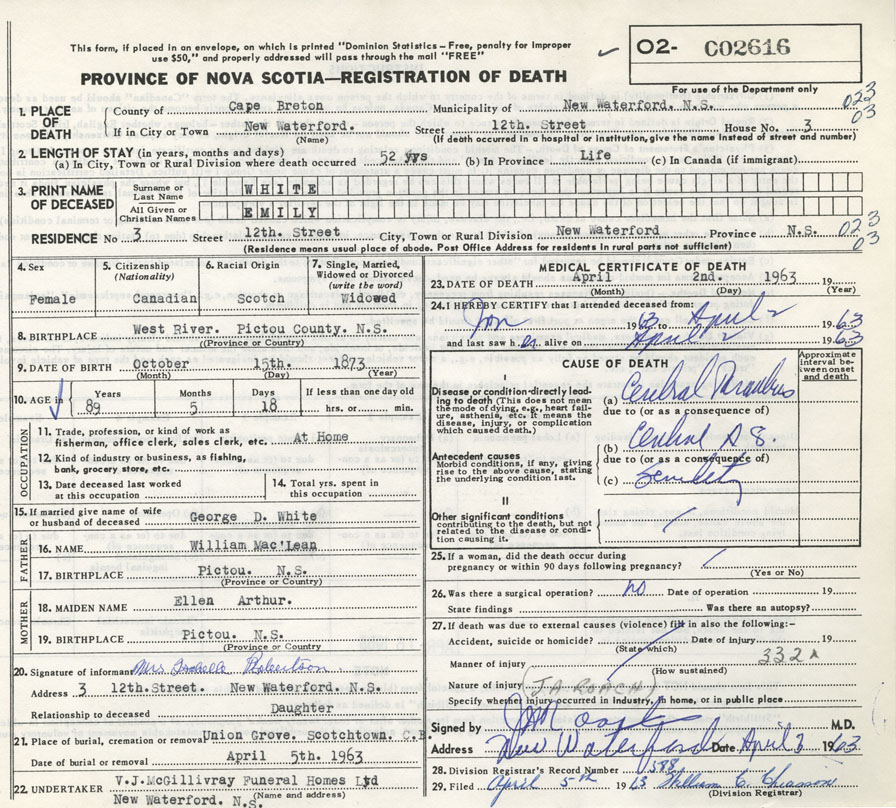 This form, if placed in an envelope, on which is printed "Dominion Statistics – Free, penalty for improper
use $50," and properly addressed will pass through the mail "FREE"
O2- C02616
PROVINCE OF NOVA SCOTIA—REGISTRATION OF DEATH
For use of the Department only
1. PLACE OF DEATH
County of Cape Breton Municipality of New Waterford. N.S. 023
If in City or Town New Waterford. Street 12th. Street House No. 3 03
(Name) (If death occurred in a hospital or institution, give the name instead of street and number)
2. LENGTH OF STAY (in years, months and days)
(a) In City, Town or Rural Division where death occurred 52 yrs (b) In Province Life (c) In Canada (if immigrant)
3. PRINT NAME OF DECEASED
Surname or Last Name WHITE
All Given or Christian Names EMILY
RESIDENCE No 3 Street 12th. Street City, Town or Rural Division New Waterford Province N.S. 023
03
(Residence means usual place of abode. Post Office Address for residents in rural parts not sufficient)
4. Sex Female
5. Citizenship (Nationality) Canadian
6. Racial Origin Scotch
7. Single, Married, Widowed or Divorced (write the word) Widowed
8. BIRTHPLACE West River. Pictou County. N.S.
(Province or Country)
9. DATE OF BIRTH October 15th. 1873
(Month) (Day) (Year)
10. AGE in Years 89 Months 5 Days 18 If less than one day old hrs. or min.
OCCUPATION
11. Trade, profession, or kind of work as fisherman, office clerk, sales clerk, etc. At Home
12. Kind of industry or business, as fishing, bank, grocery store, etc.
13. Date deceased last worked at this occupation
14. Total yrs. spent in this occupation
15. If married give name of wife or husband of deceased George D. White
FATHER
16. NAME William Mac'Lean
17. BIRTHPLACE Pictou. N.S.
(Province or Country)
MOTHER
18. MAIDEN NAME Ellen Arthur.
19. BIRTHPLACE Pictou. N.S.
(Province or Country)
20. Signature of informant Mrs Robertson
Address 3 12th.Street. New Waterford. N.S.
Relationship to deceased Daughter
21. Place of burial, cremation or removal Union Grove. Scotchtown. C.B.
Date of burial or removal April 5th. 1963
22. UNDERTAKER V.J.McGillivray Funeral Homes Ltd
New Waterford. N.S. (Name and address)
MEDICAL CERTIFICATE OF DEATH
23. DATE OF DEATH April 2nd. 1963 19
(Month) (Day) (Year)
24. I HEREBY CERTIFY that I attended deceased from:
Jan 1963 April 2 1963
and last saw her alive on April 2 1963
CAUSE OF DEATH
Approximate interval between onset and death
I
Disease or condition directly leading to death (This does not mean the mode of dying, e.g., heart failure, asthenia, etc. It means the disease, injury, or complication which caused death.)
(a)
due to (or as a consequence of)
Antecedent causes
Morbid conditions, if any, giving rise to the above cause, stating the underlying condition last.
(b)
due to (or as a consequence of)
(c)
II
Other significant conditions contributing to the death, but not related to the disease or condition causing it.
25. If a woman, did the death occur during pregnancy or within 90 days following pregnancy?
(Yes or No)
26. Was there a surgical operation? no Date of operation 19
State findings Was there an autopsy?
27. If death was due to external causes (violence) fill in also the following:–
Accident, suicide or homicide? Date of injury 19
(State which)
Manner of injury 332
(How sustained)
Nature of injury (J.A ROACH)
Specify whether injury occurred in industry, in home, or in public place
Signed by M.D.
Address New Waterford Date April 3 1963
28. Division Registrar's Record Number 588
29. Filed April 5th 1963 William C. Chiasson
(Division Registrar)